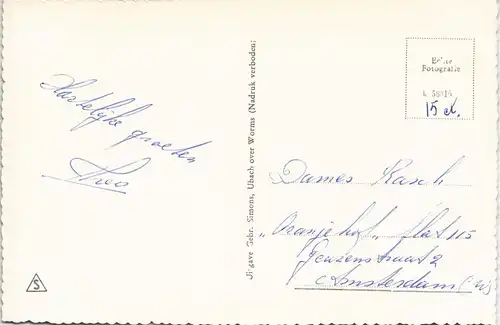 Hartelijke groeten
Theo
Uitgave Gebr. Simons, Ubach over Worms (Nadruk verboden)
Echte
Fotografie
15 ct.
Dames Rasch
„Oranjehof„ flat 115
Geuzenstraat 2
Amsterdam (W)
S